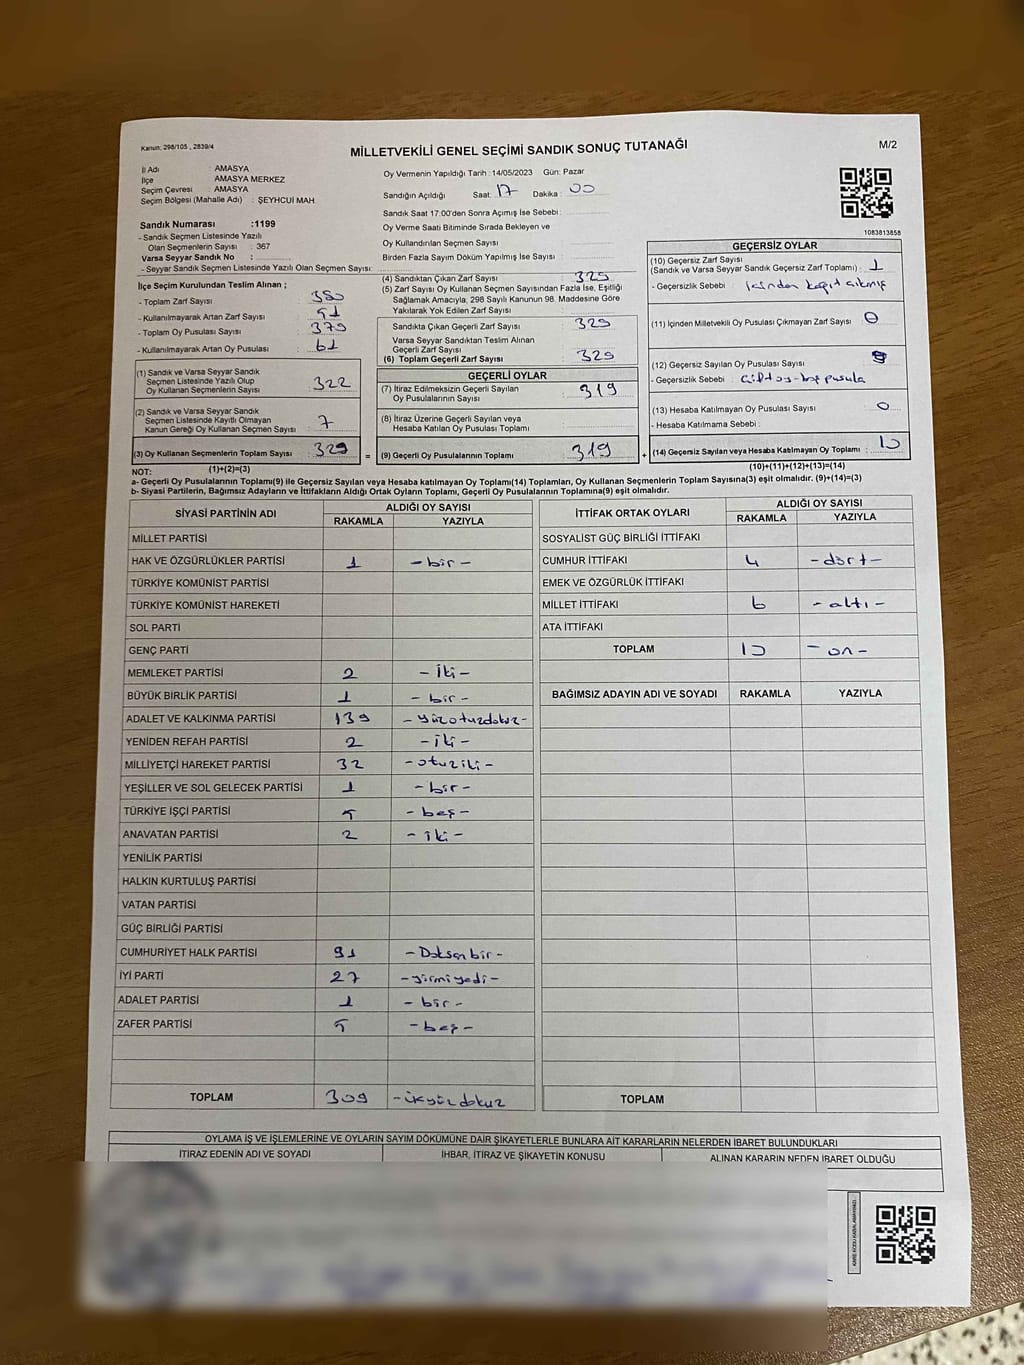 Kanun: 298/105 , 2839/4
MİLLETVEKİLİ GENEL SEÇİMİ SANDIK SONUÇ TUTANAĞI
M/2
İl Adı : AMASYA
İlçe : AMASYA MERKEZ
Seçim Çevresi : AMASYA
Seçim Bölgesi (Mahalle Adı) : ŞEYHCUİ MAH.
Sandık Numarası :1199
- Sandık Seçmen Listesinde Yazılı
Olan Seçmenlerin Sayısı : 367
Varsa Seyyar Sandık No :
- Seyyar Sandık Seçmen Listesinde Yazılı Olan Seçmen Sayısı:
Oy Vermenin Yapıldığı Tarih : 14/05/2023 Gün: Pazar
Sandığın Açıldığı Saat: 17 Dakika : 00
Sandık Saat 17:00'den Sonra Açımış İse Sebebi :
Oy Verme Saati Bitiminde Sırada Bekleyen ve
Oy Kullandırılan Seçmen Sayısı
Birden Fazla Sayım Döküm Yapılmış İse Sayısı :
1083813858
İlçe Seçim Kurulundan Teslim Alınan ;
- Toplam Zarf Sayısı : 380
- Kullanılmayarak Artan Zarf Sayısı : 51
- Toplam Oy Pusulası Sayısı : 379
- Kullanılmayarak Artan Oy Pusulası : 61
(1) Sandık ve Varsa Seyyar Sandık
Seçmen Listesinde Yazılı Olup
Oy Kullanan Seçmenlerin Sayısı : 322
(2) Sandık ve Varsa Seyyar Sandık
Seçmen Listesinde Kayıtlı Olmayan
Kanun Gereği Oy Kullanan Seçmen Sayısı : 7
(3) Oy Kullanan Seçmenlerin Toplam Sayısı : 329
(4) Sandıktan Çıkan Zarf Sayısı : 329
(5) Zarf Sayısı Oy Kullanan Seçmen Sayısından Fazla İse, Eşitliği
Sağlamak Amacıyla, 298 Sayılı Kanunun 98. Maddesine Göre
Yakılarak Yok Edilen Zarf Sayısı :
Sandıkta Çıkan Geçerli Zarf Sayısı : 329
Varsa Seyyar Sandıktan Teslim Alınan
Geçerli Zarf Sayısı :
(6) Toplam Geçerli Zarf Sayısı : 329
GEÇERLİ OYLAR
(7) İtiraz Edilmeksizin Geçerli Sayılan
Oy Pusulalarının Sayısı : 319
(8) İtiraz Üzerine Geçerli Sayılan veya
Hesaba Katılan Oy Pusulası Toplamı :
= (9) Geçerli Oy Pusulalarının Toplamı : 319
GEÇERSİZ OYLAR
(10) Geçersiz Zarf Sayısı
(Sandık ve Varsa Seyyar Sandık Geçersiz Zarf Toplamı) : 1
- Geçersizlik Sebebi : içinden kağıt çıkmış
(11) İçinden Milletvekili Oy Pusulası Çıkmayan Zarf Sayısı : 0
(12) Geçersiz Sayılan Oy Pusulası Sayısı : 9
- Geçersizlik Sebebi :
(13) Hesaba Katılmayan Oy Pusulası Sayısı : 0
- Hesaba Katılmama Sebebi :
+ (14) Geçersiz Sayılan veya Hesaba Katılmayan Oy Toplamı : 10
NOT: (1)+(2)=(3)
(10)+(11)+(12)+(13)=(14)
a- Geçerli Oy Pusulalarının Toplamı(9) ile Geçersiz Sayılan veya Hesaba katılmayan Oy Toplamı(14) Toplamları, Oy Kullanan Seçmenlerin Toplam Sayısına(3) eşit olmalıdır. (9)+(14)=(3)
b- Siyasi Partilerin, Bağımsız Adayların ve İttifakların Aldığı Ortak Oyların Toplamı, Geçerli Oy Pusulalarının Toplamına(9) eşit olmalıdır.
SİYASİ PARTİNİN ADI ALDIĞI OY SAYISI
RAKAMLA YAZIYLA
MİLLET PARTİSİ
HAK VE ÖZGÜRLÜKLER PARTİSİ 1 -bir-
TÜRKİYE KOMÜNİST PARTİSİ
TÜRKİYE KOMÜNİST HAREKETİ
SOL PARTİ
GENÇ PARTİ
MEMLEKET PARTİSİ 2 -İki-
BÜYÜK BİRLİK PARTİSİ 1 -bir-
ADALET VE KALKINMA PARTİSİ 139 -yüzotuzdokuz-
YENİDEN REFAH PARTİSİ 2 -iki-
MİLLİYETÇİ HAREKET PARTİSİ 32 -otuziki-
YEŞİLLER VE SOL GELECEK PARTİSİ 1 -bir-
TÜRKİYE İŞÇİ PARTİSİ 5 -beş-
ANAVATAN PARTİSİ 2 -iki-
YENİLİK PARTİSİ
HALKIN KURTULUŞ PARTİSİ
VATAN PARTİSİ
GÜÇ BİRLİĞİ PARTİSİ
CUMHURİYET HALK PARTİSİ 91 -Doksanbir-
İYİ PARTİ 27 -yirmiyedi-
ADALET PARTİSİ 1 -bir-
ZAFER PARTİSİ 5 -beş-
TOPLAM 309 -üçyüzdokuz
İTTİFAK ORTAK OYLARI ALDIĞI OY SAYISI
RAKAMLA YAZIYLA
SOSYALİST GÜÇ BİRLİĞİ İTTİFAKI
CUMHUR İTTİFAKI 4 -dört-
EMEK VE ÖZGÜRLÜK İTTİFAKI
MİLLET İTTİFAKI 6 -altı-
ATA İTTİFAKI
TOPLAM 10 -on-
BAĞIMSIZ ADAYIN ADI VE SOYADI RAKAMLA YAZIYLA
TOPLAM
OYLAMA İŞ VE İŞLEMLERİNE VE OYLARIN SAYIM DÖKÜMÜNE DAİR ŞİKAYETLERLE BUNLARA AİT KARARLARIN NELERDEN İBARET BULUNDUKLARI
İTİRAZ EDENİN ADI VE SOYADI İHBAR, İTİRAZ VE ŞİKAYETİN KONUSU ALINAN KARARIN NEDEN İBARET OLDUĞU